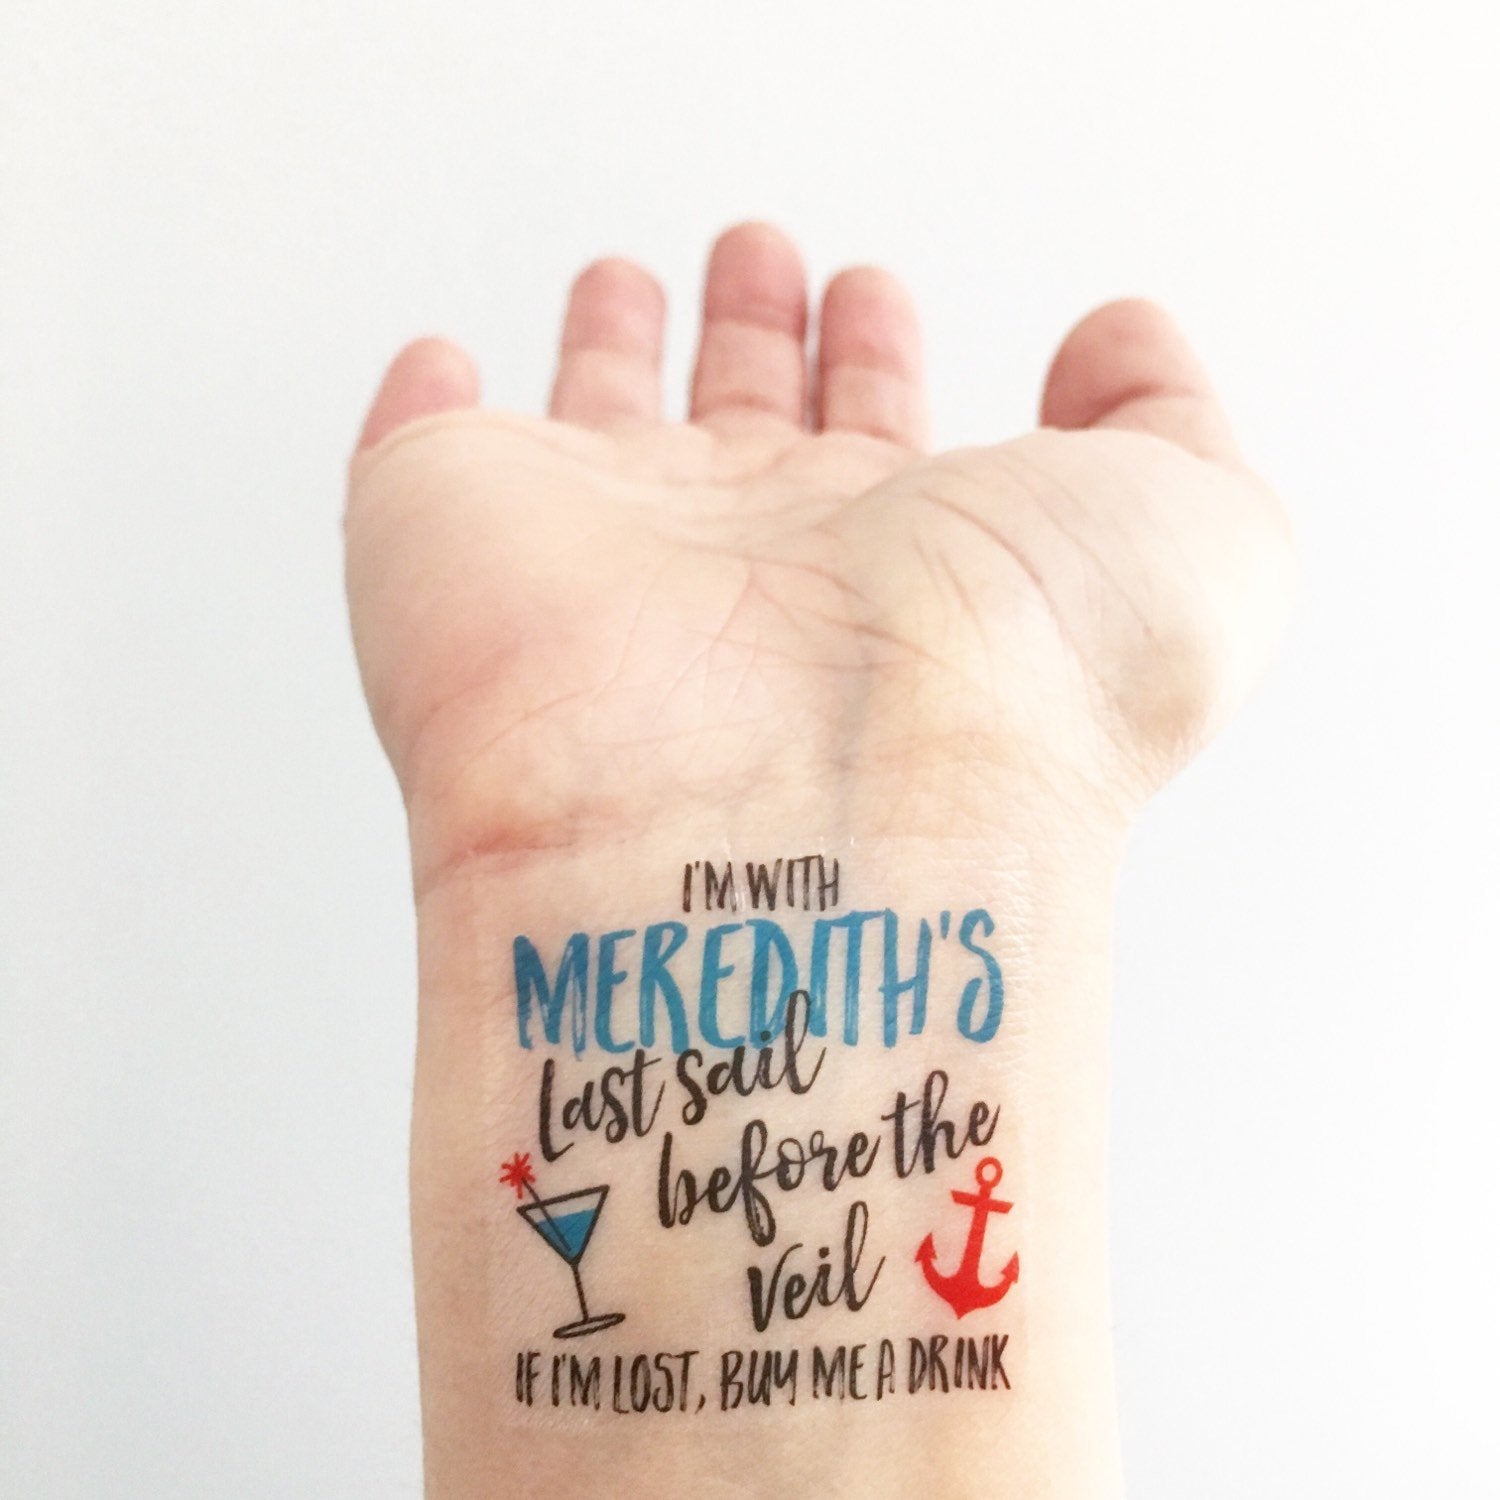 I'M WITH
MEREDITH'S
Last sail
before the
veil
IF I'M LOST, BUY ME A DRINK